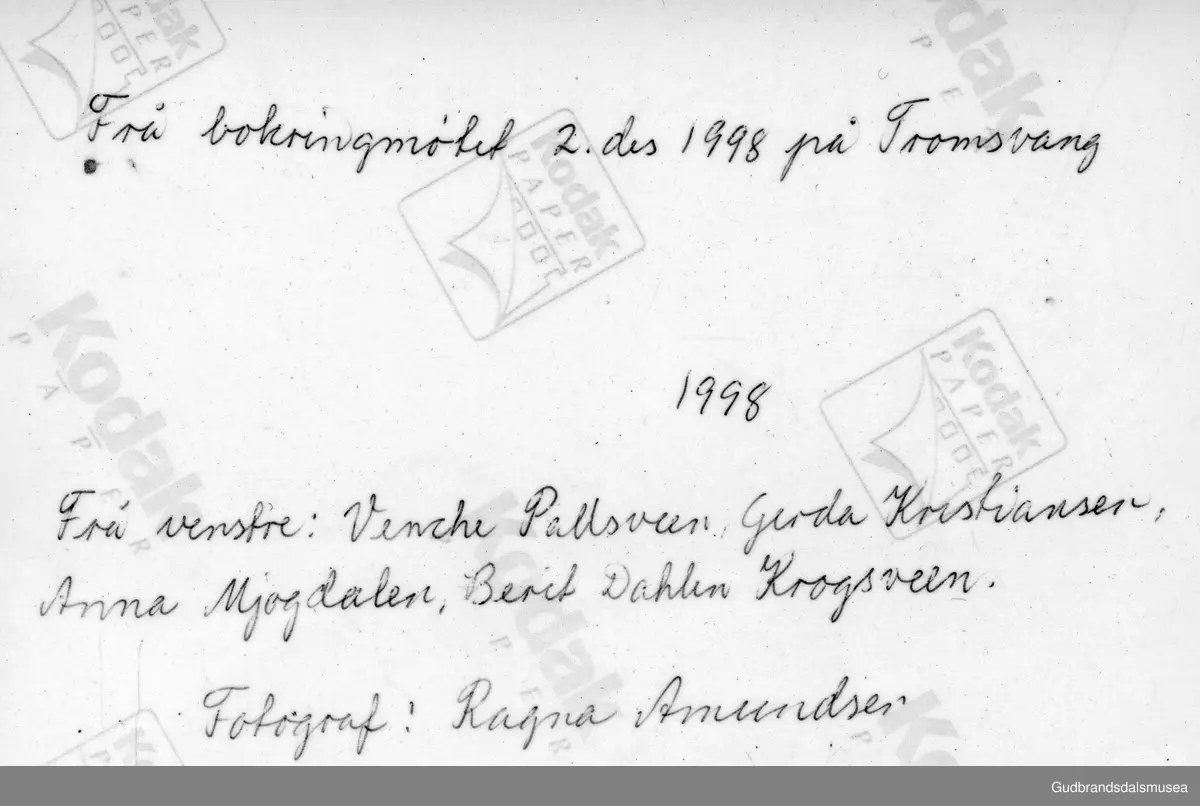 Frå bokringmøtet 2. des 1998 på Tromsvang
1998
Frå venstre: Venche Pallsveen, Gerda Kristiansen,
Anna Mjogdalen, Berit Dahlen Krogsveen.
Fotograf: Ragna Amundsen
Kodak
PAPER
Kodak
PAPER
Kodak
PAPER
Kodak
PAPER
Kodak
PAPER
Kodak
PAPER
Gudbrandsdalsmusea